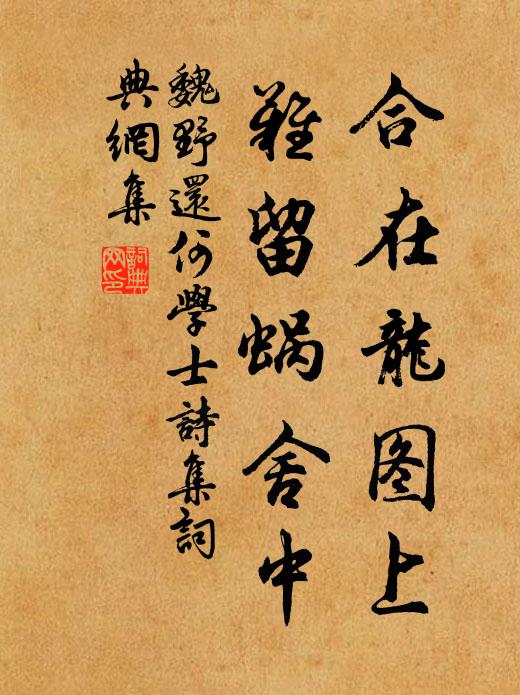 合在龍图上
難留蜗舍中
魏野還何學士詩集詞
典網集
詞典
网印